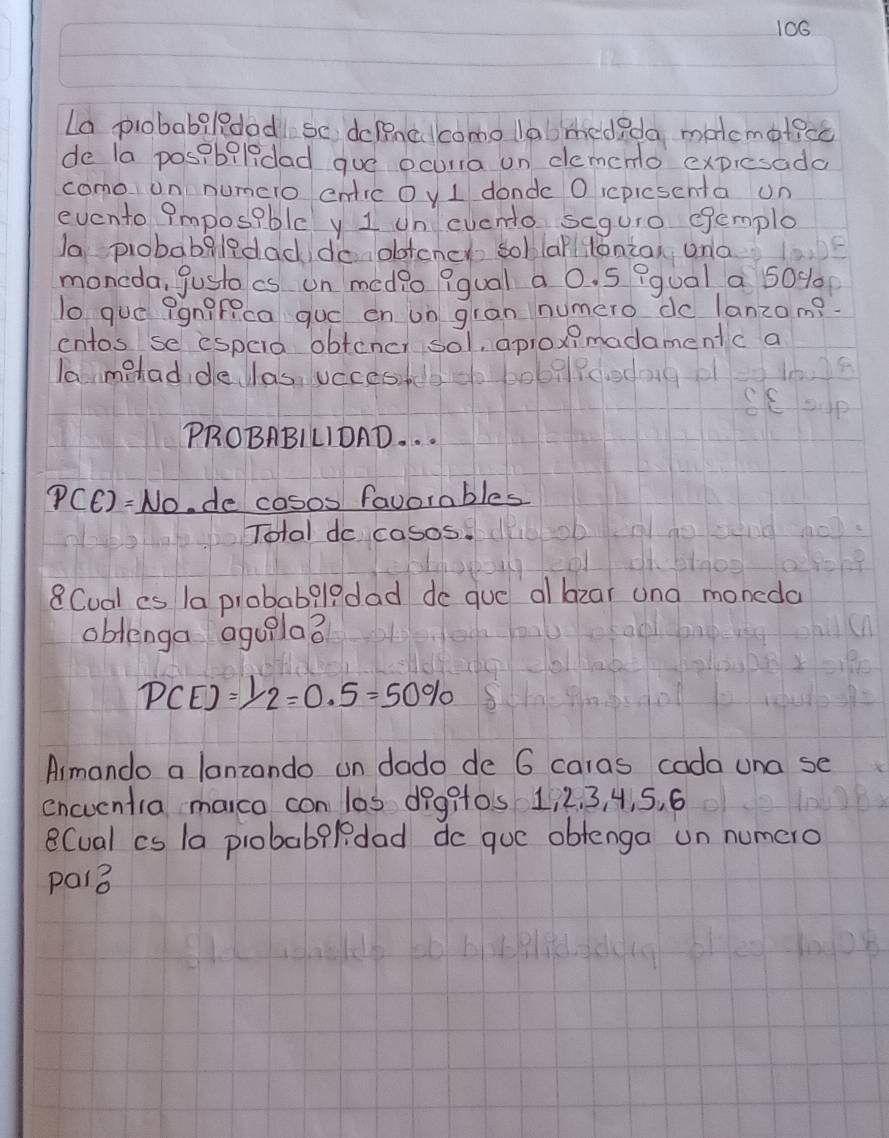 106
La probabilidad se define como la medida matematica
de la posibilidad que ocurra un elemento expresada
como un numero entre 0 y 1 donde 0 representa un
evento imposible y 1 un evento seguro egemplo
la probabilidad de obtener sol al lanzar una
moneda, justo es un medio igual a 0.5 igual a 50%
lo que ignifica que en un gran numero de lanzami-
entos se espera obtener sol, aproximadamente a
la mitad de las veces.
PROBABILIDAD...
P(E)=No. de casos favorables
Total de casos.
¿Cual es la probabilidad de que al lazar una moneda
obtenga aguila?
P(E)=1/2=0.5=50%
Armando a lanzando un dado de 6 caras cada una se
encuentra marca con los digitos 1,2,3,4,5,6
¿Cual es la probabilidad de que obtenga un numero
par?